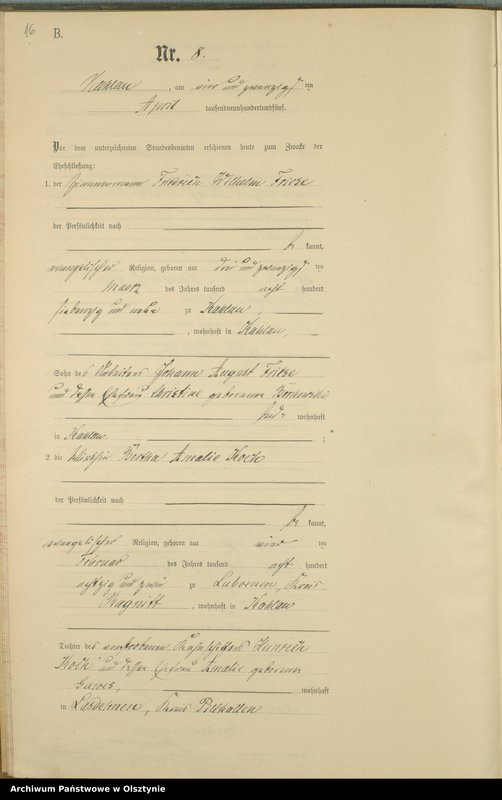 16
B.
Nr. 8.
Kahlau, am vier und zwanzigsten
April tausendneunhundertundfünf.
Vor dem unterzeichneten Standesbeamten erschienen heute zum Zwecke der
Eheschließung:
1. der Zimmermann Friedrich Wilhelm Friese
der Persönlichkeit nach
be kannt,
evangelischer Religion, geboren am drei und zwanzigsten
März des Jahres tausend acht hundert
siebenzig und neun zu Kahlau,
, wohnhaft in Kahlau,
Sohn des Arbeiters Johann August Friese
und dessen Ehefrau Christine geborenen
beide wohnhaft
in Kahlau ;
2. die Wirthin Bertha Amalie Koch
der Persönlichkeit nach
be kannt,
evangelischer Religion, geboren am vierten
Februar des Jahres tausend acht hundert
achtzig und zwei zu Luboenen, Kreis
Ragnitt, wohnhaft in Kahlau
Tochter des verstorbenen Kahnschiffers Heinrich
Koch und dessen Ehefrau Amalie geborenen
, wohnhaft
in Lasdehnen, Kreis Pillkallen
Archiwum Państwowe w Olsztynie